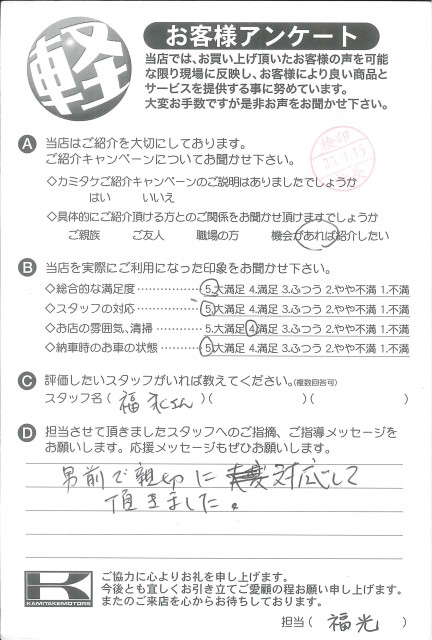 軽
お客様アンケート
当店では、お買い上げ頂いたお客様の声を可能
な限り現場に反映し、お客様により良い商品と
サービスを提供する事に努めています。
大変お手数ですが是非お声をお聞かせ下さい。
A 当店はご紹介を大切にしております。
ご紹介キャンペーンについてお聞かせ下さい。
検印
◇カミタケご紹介キャンペーンのご説明はありましたでしょうか
はい いいえ
◇具体的にご紹介頂ける方とのご関係をお聞かせ頂けますでしょうか
ご親族 ご友人 職場の方 機会があれば紹介したい
B 当店を実際にご利用になった印象をお聞かせ下さい。
◇総合的な満足度………………5.大満足 4.満足 3.ふつう 2.やや不満 1.不満
◇スタッフの対応………………5.大満足 4.満足 3.ふつう 2.やや不満 1.不満
◇お店の雰囲気、清掃…………5.大満足 4.満足 3.ふつう 2.やや不満 1.不満
◇納車時のお車の状態…………5.大満足 4.満足 3.ふつう 2.やや不満 1.不満
C 評価したいスタッフがいれば教えてください。(複数回答可)
スタッフ名( 福 さん )( )( )
D 担当させて頂きましたスタッフへのご指摘、ご指導メッセージを
お願いします。応援メッセージもぜひお願いします。
男前で親切に 対応して
頂きました。
K
KAMITAKE MOTORS
ご協力に心よりお礼を申し上げます。
今後とも宜しくお引き立てご愛顧の程お願い申し上げます。
またのご来店を心からお待ちしております。
担当( 福光 )